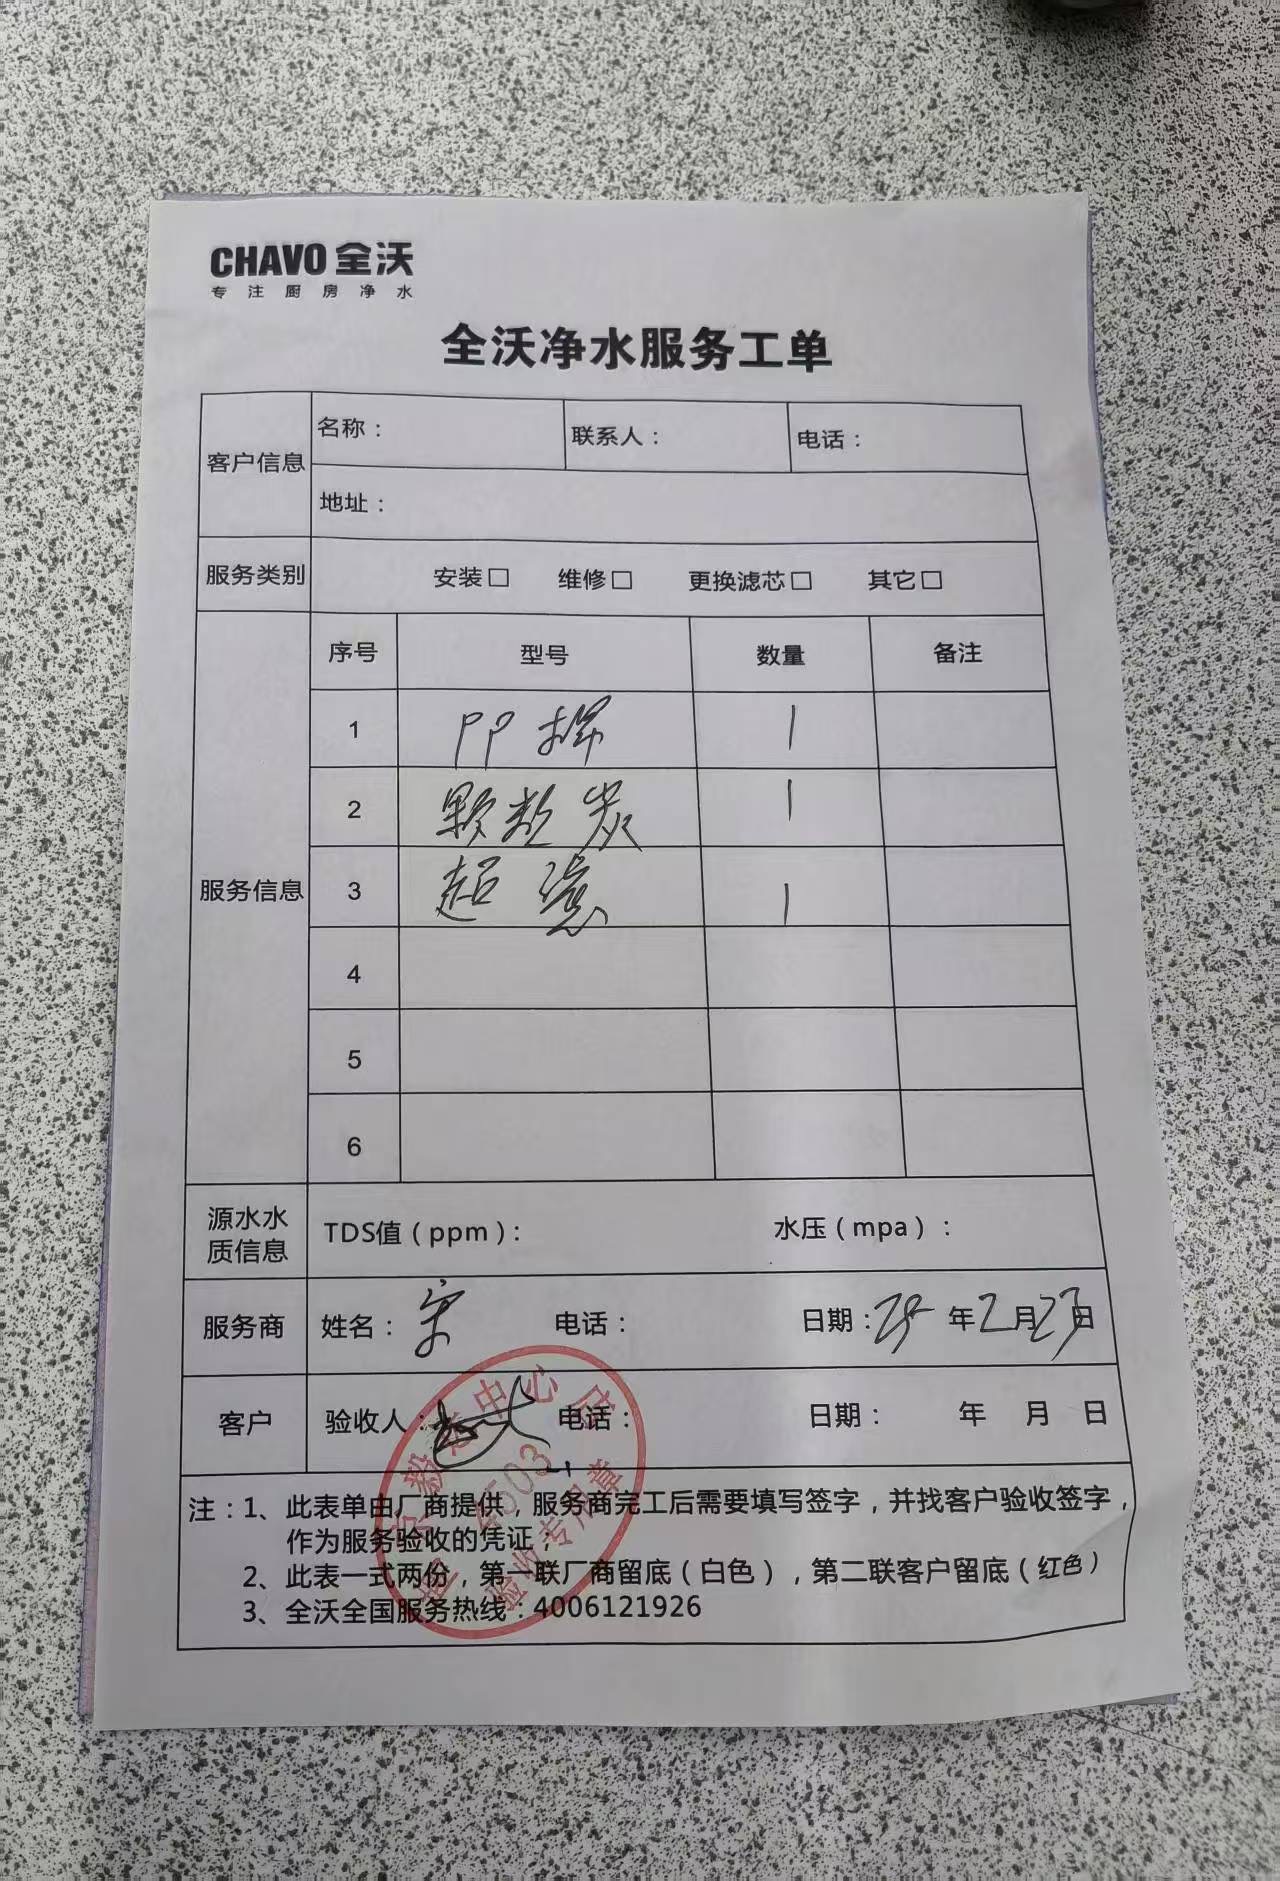 CHAVO 全沃
专注厨房净水
全沃净水服务工单
客户信息 名称： 联系人： 电话：
地址：
服务类别 安装□ 维修□ 更换滤芯□ 其它□
服务信息 序号 型号 数量 备注
1 PP棉 1
2 颗粒炭 1
3 超滤 1
4
5
6
源水水质信息 TDS值（ppm）： 水压（mpa）：
服务商 姓名：宋 电话： 日期：25年2月23日
客户 验收人： 电话： 日期： 年 月 日
注：1、此表单由厂商提供，服务商完工后需要填写签字，并找客户验收签字，
作为服务验收的凭证；
2、此表一式两份，第一联厂商留底（白色），第二联客户留底（红色）
3、全沃全国服务热线：4006121926
中心店
4503
验收专用章